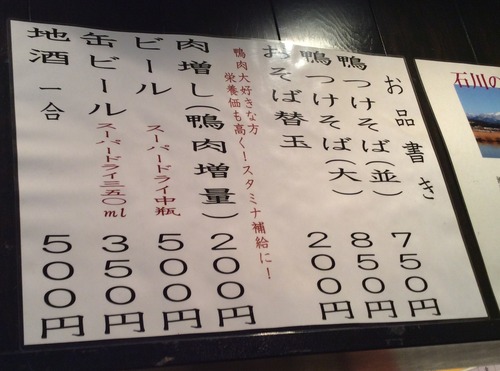 お品書き
鴨つけそば(並) 750円
鴨つけそば(大) 850円
おそば替玉 200円
鴨肉大好きな方
栄養価も高く!スタミナ補給に!
肉増し(鴨肉増量) 200円
ビール スーパードライ中瓶 500円
缶ビール スーパードライ三五〇ml 350円
地酒 一合 500円
石川の